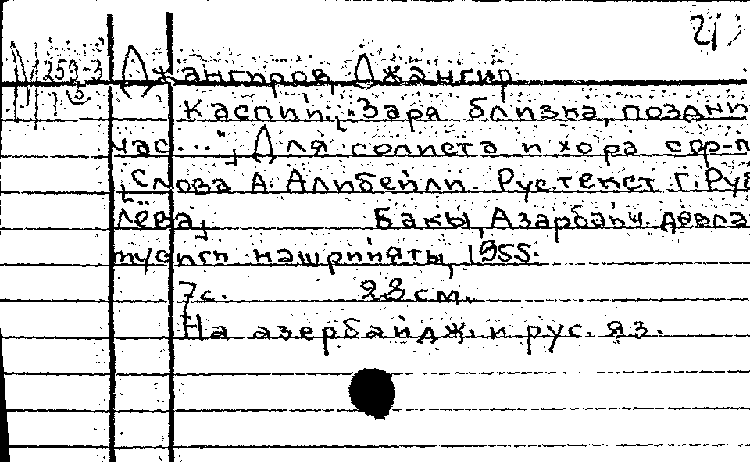 253-3 Джангиров, Джангир
Каспий. „Заря близка, поздний
час...", Для солиста и хора сор-п
Слова А. Алибейли. Рус текст Г. Руб
лёва, Бакы, Азәрбајҹ. дөвлә
мусиги нәшријјаты, 1955.
7с. 28 см.
На азербайдж. и рус. яз.